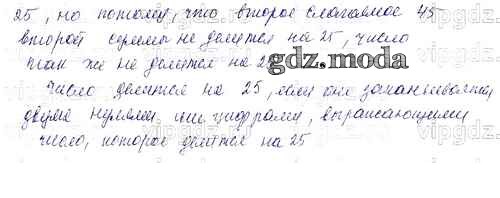 25, но потому, что второе слагаемое 45
второй суммы не делится на 25, число
так же не делится на 2
gdz.moda
число делится на 25, если оно заканчивается
двумя нулями или цифрами, выражающими
число, которое делится на 25